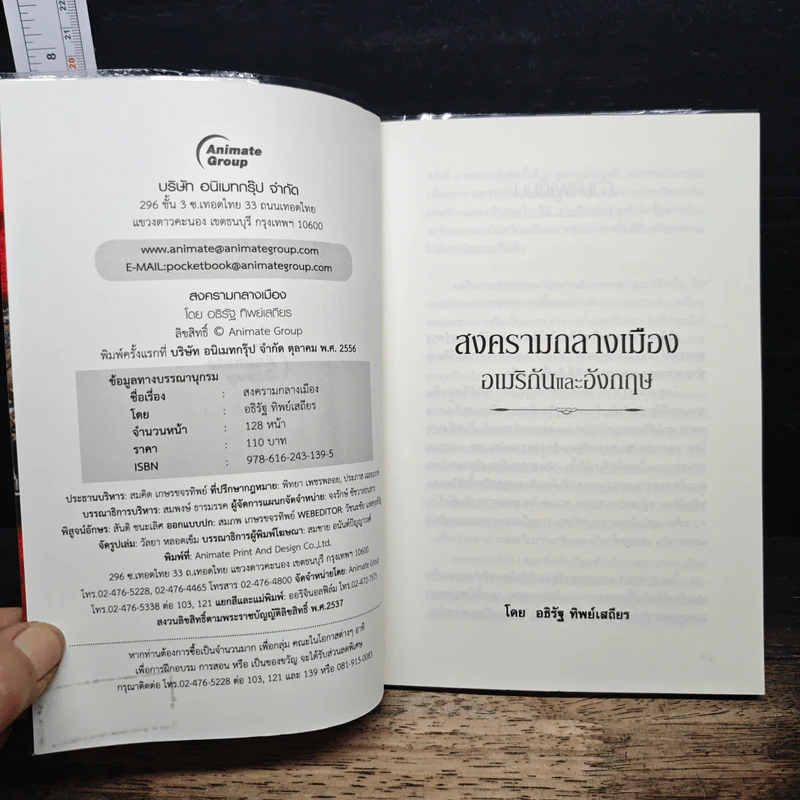 8
21
20
Animate
Group
บริษัท อนิเมทกรุ๊ป จำกัด
296 ชั้น 3 ซ.เทอดไทย 33 ถนนเทอดไทย
แขวงดาวคะนอง เขตธนบุรี กรุงเทพฯ 10600
www.animate@animategroup.com
E-MAIL:pocketbook@animategroup.com
สงครามกลางเมือง
โดย อธิรัฐ ทิพย์เสถียร
ลิขสิทธิ์ © Animate Group
พิมพ์ครั้งแรกที่ บริษัท อนิเมทกรุ๊ป จำกัด ตุลาคม พ.ศ. 2556
ข้อมูลทางบรรณานุกรม
ชื่อเรื่อง : สงครามกลางเมือง
โดย : อธิรัฐ ทิพย์เสถียร
จำนวนหน้า : 128 หน้า
ราคา : 110 บาท
ISBN : 978-616-243-139-5
ประธานบริหาร: สมคิด เกษรขจรทิพย์ ที่ปรึกษากฎหมาย: พิทยา เพชรพลอย, ประภาส
บรรณาธิการบริหาร: สมพงษ์ ธารมรรค ผู้จัดการแผนกจัดจำหน่าย: จงรักษ์ ชัชวาลธนสาร
พิสูจน์อักษร: สันติ ชนะเลิศ ออกแบบปก: สมภพ เกษรขจรทิพย์ WEBEDITOR: วัชนะชัย
จัดรูปเล่ม: วัลยา หลอดเข็ม บรรณาธิการผู้พิมพ์โฆษณา: สมชาย อนันต์ปัญญาวงศ์
พิมพ์ที่: Animate Print And Design Co.,Ltd.
296 ซ.เทอดไทย 33 ถ.เทอดไทย แขวงดาวคะนอง เขตธนบุรี กรุงเทพฯ 10600
โทร.02-476-5228, 02-476-4465 โทรสาร 02-476-4800 จัดจำหน่ายโดย: Animate Group
โทร.02-476-5338 ต่อ 103, 121 แยกสีและแม่พิมพ์: ออริจินอลฟิล์ม โทร.02-472-7575
สงวนลิขสิทธิ์ตามพระราชบัญญัติลิขสิทธิ์ พ.ศ.2537
หากท่านต้องการซื้อเป็นจำนวนมาก เพื่อกลุ่ม คณะในโอกาสต่างๆ อาทิ
เพื่อการฝึกอบรม การสอน หรือ เป็นของขวัญ จะได้รับส่วนลดพิเศษ
กรุณาติดต่อ โทร.02-476-5228 ต่อ 103, 121 และ 139 หรือ 081-915-0083
สงครามกลางเมือง
อเมริกันและอังกฤษ
โดย อธิรัฐ ทิพย์เสถียร